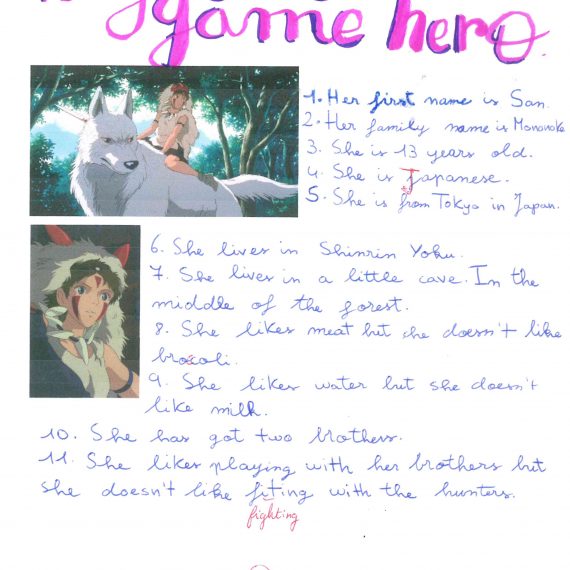 game hero
1. Her first name is San.
2. Her family name is Mononoke
3. She is 13 years old.
4. She is Japanese.
5. She is from Tokyo in Japan.
6. She lives in Shinrin Yoku.
7. She lives in a little cave. In the
middle of the forest.
8. She likes meat but she doesn't like
brocoli.
9. She likes water but she doesn't
like milk.
10. She has got two brothers.
11. She likes playing with her brothers but
she doesn't like fiting with the hunters.
fighting